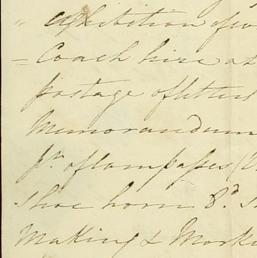 " exhibition of
= Coach hire at
postage of letters
Memorandum
pr. of lampapes
Shoe horn 8d.
Making & Mark